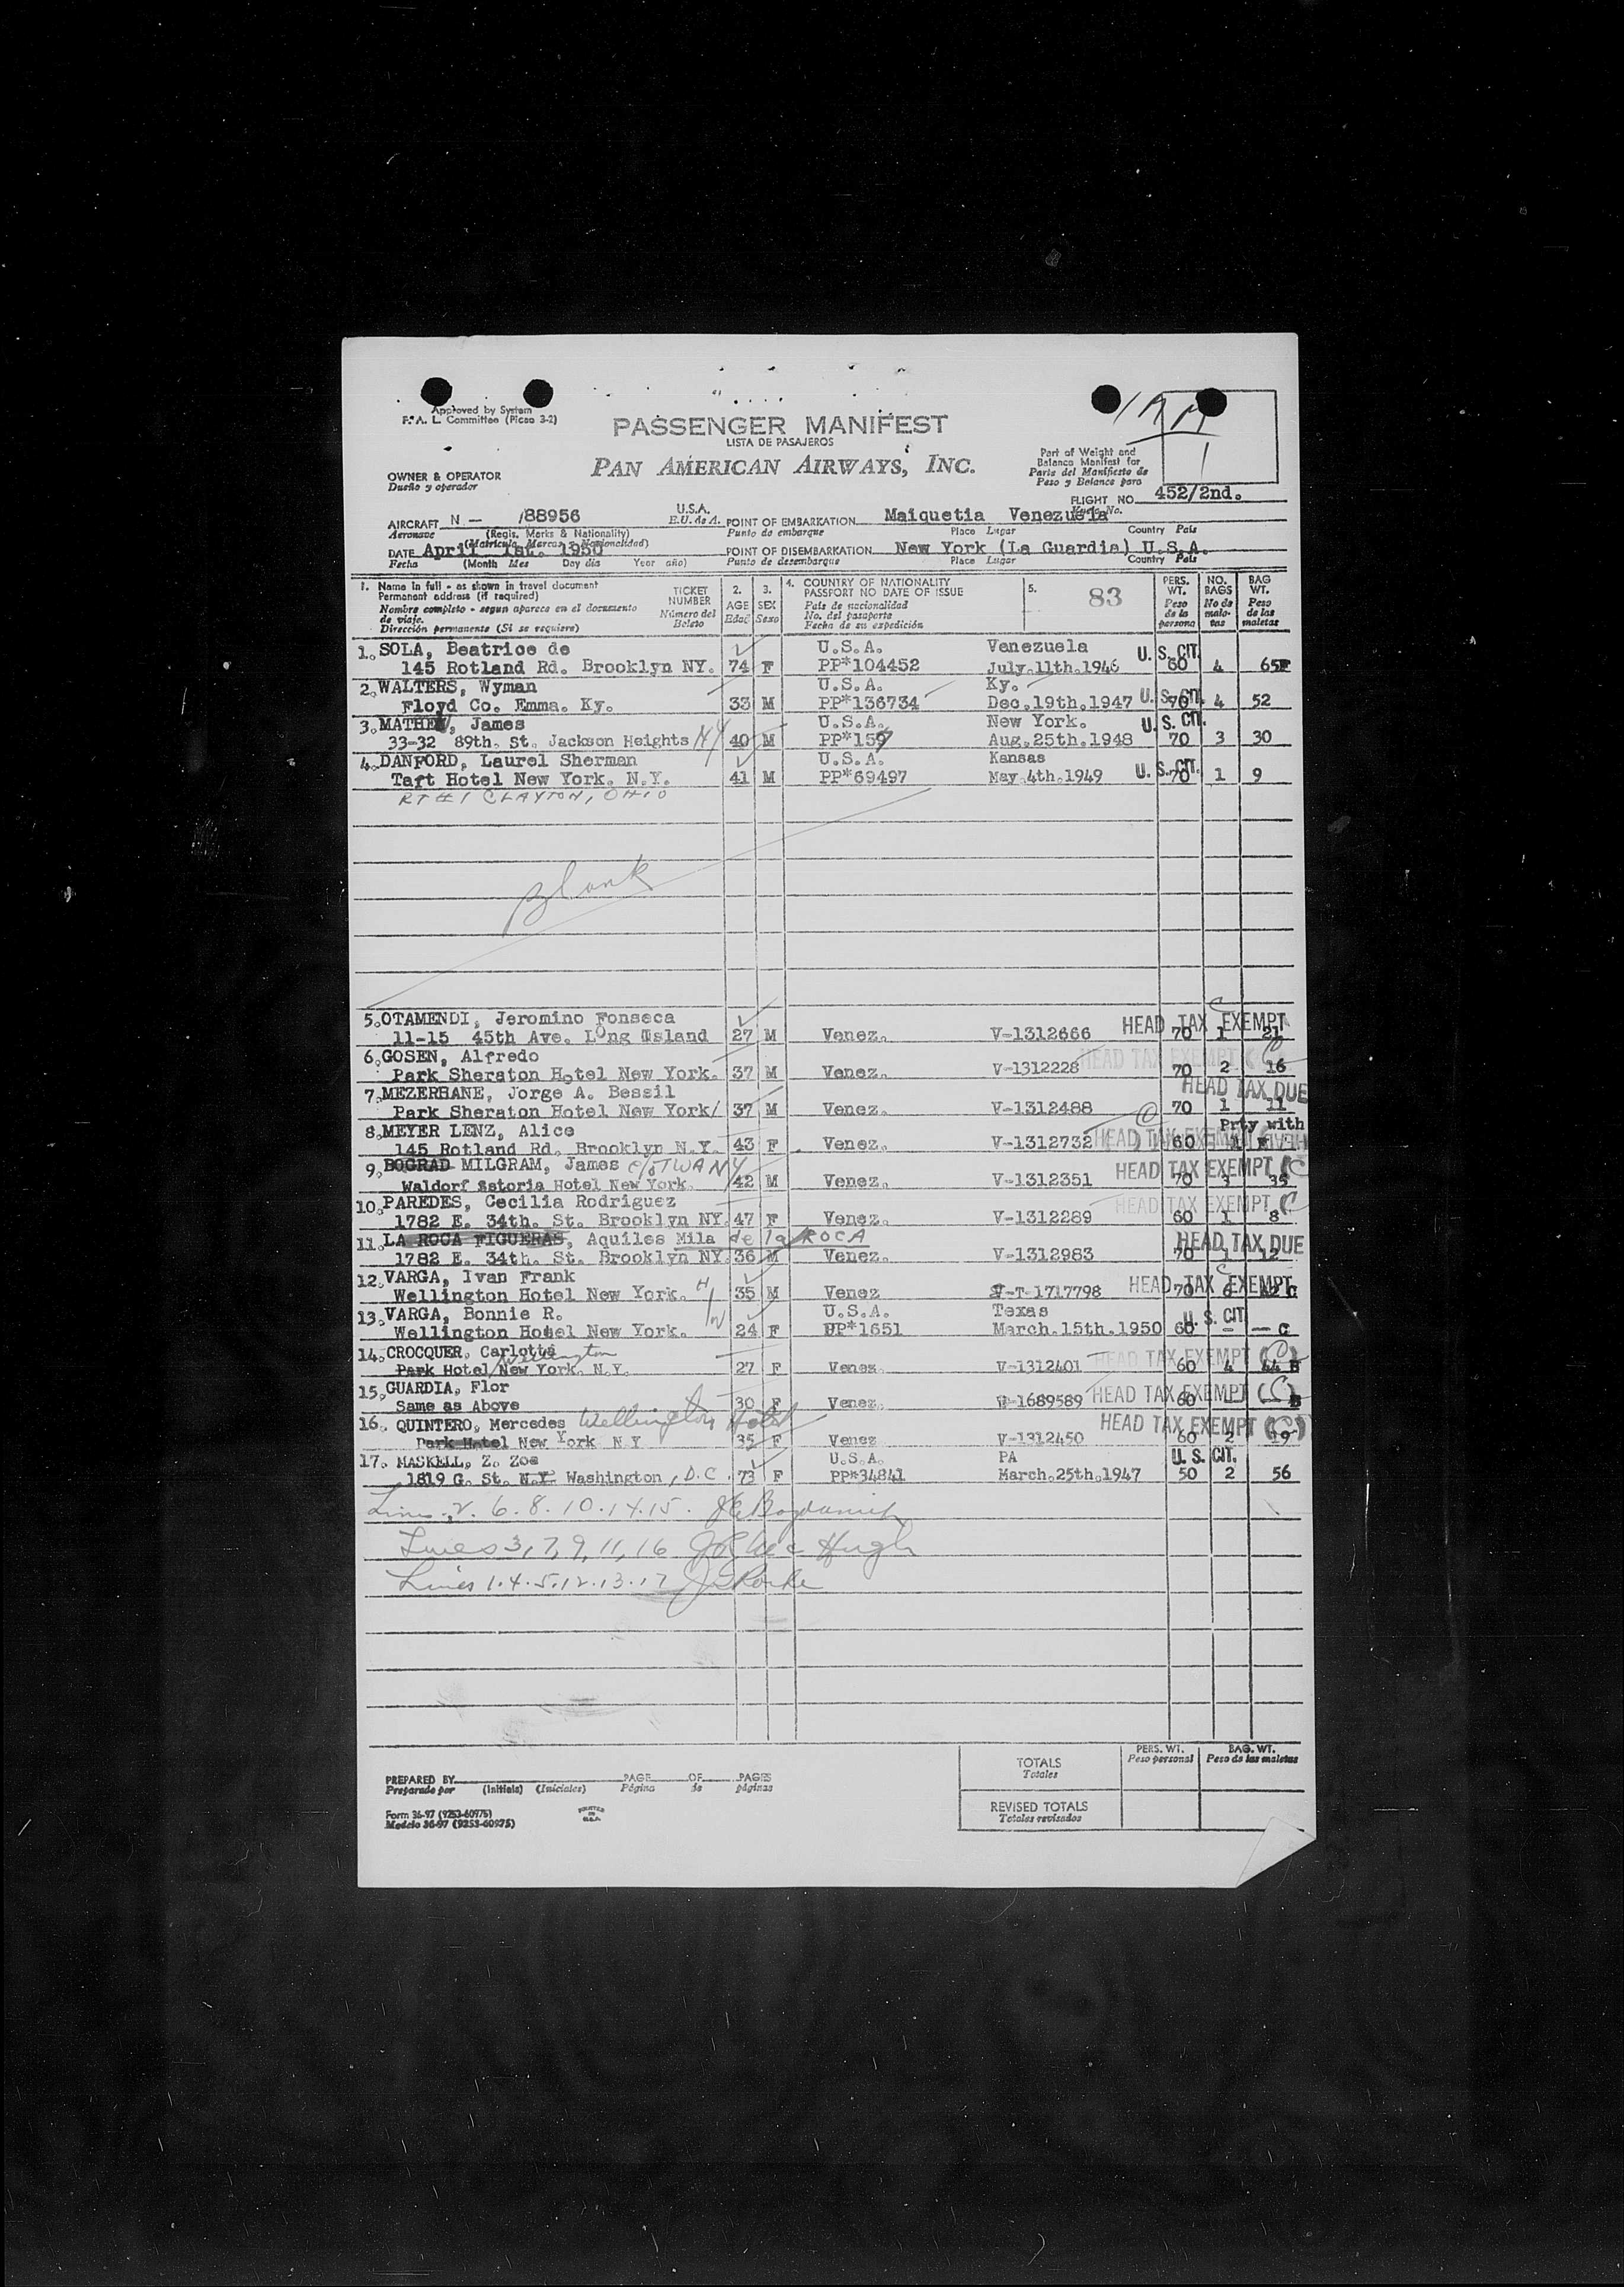 Approved by System
P. A. L. Committee (Picao 3-2)
PASSENGER MANIFEST
LISTA DE PASAJEROS
PAN AMERICAN AIRWAYS, INC.
Part of Weight and
Balance Manifest for
Parte del Manifiesto de
Peso y Balance para
OWNER & OPERATOR
Dueño y operador
FLIGHT NO. 452/2nd.
Vuelo No.
AIRCRAFT N - /88956 U.S.A. POINT OF EMBARKATION Maiquetia Venezuela
Aeronave (Regis. Marks & Nationality) E.U. de A. Punto de embarque Place Lugar Country País
(Matrícula Marcas y Nacionalidad)
DATE April 1st. 1950 POINT OF DISEMBARKATION New York (La Guardia) U.S.A.
Fecha (Month Mes Day día Year año) Punto de desembarque Place Lugar Country País
1. Name in full - as shown in travel document
Permanent address (if required)
Nombre completo - segun aparece en el documento
de viaje.
Dirección permanente (Si se requiere)
TICKET
NUMBER
Número del
Boleto
2.
AGE
Edad
3.
SEX
Sexo
4. COUNTRY OF NATIONALITY
PASSPORT NO DATE OF ISSUE
País de nacionalidad
No. del pasaporte
Fecha de su expedición
5. 83
PERS.
WT.
Peso
de la
persona
NO.
BAGS
No de
male-
tas
BAG
WT.
Peso
de las
maletas
1. SOLA, Beatrice de U.S.A. Venezuela U. S. CIT.
145 Rotland Rd. Brooklyn NY. 74 F PP*104452 July.11th.1946 60 4 65
2. WALTERS, Wyman U.S.A. Ky.
Floyd Co. Emma. Ky. 33 M PP*136734 Dec.19th.1947 U. S. CIT. 70 4 52
3. MATHEW, James U.S.A. New York. U. S. CIT.
33-32 89th. St. Jackson Heights NY 40 M PP*159 Aug.25th.1948 70 3 30
4. DANFORD, Laurel Sherman U.S.A. Kansas
Taft Hotel New York. N.Y. 41 M PP*69497 May.4th.1949 U. S. CIT. 70 1 9
RT #1 CLAYTON, OHIO
Blank
5. OTAMENDI, Jeromino Fonseca HEAD TAX EXEMPT C
11-15 45th Ave. Long Island 27 M Venez. V-1312666 70 1 21
6. GOSEN, Alfredo HEAD TAX EXEMPT (C)
Park Sheraton Hotel New York. 37 M Venez. V-1312228 70 2 16
7. MEZERHANE, Jorge A. Bessil HEAD TAX DUE
Park Sheraton Hotel New York/ 37 M Venez. V-1312488 70 1 11
8. MEYER LENZ, Alice Prty with
145 Rotland Rd. Brooklyn N.Y. 43 F Venez. V-1312732 HEAD TAX EXEMPT (C) 60
9. BOGRAD MILGRAM, James c/o TWA NY HEAD TAX EXEMPT (C)
Waldorf Astoria Hotel New York. 42 M Venez. V-1312351 70 3 35
10. PAREDES, Cecilia Rodriguez HEAD TAX EXEMPT (C)
1782 E. 34th. St. Brooklyn NY. 47 F Venez. V-1312289 60 1 8
11. LA ROCA FIGUERAS, Aquiles Mila de la ROCA HEAD TAX DUE
1782 E. 34th. St. Brooklyn NY. 36 M Venez. V-1312983 70 1 12
12. VARGA, Ivan Frank HEAD TAX EXEMPT C
Wellington Hotel New York. 35 M Venez V-T-1717798 70 6 42 C
13. VARGA, Bonnie R. U.S.A. Texas U. S. CIT.
Wellington Hotel New York. 24 F PP*1651 March.15th.1950 60 - - C
14. CROCQUER, Carlotta HEAD TAX EXEMPT (C)
Park Hotel Wellington New York. N.Y. 27 F Venez. V-1312401 60 4 44 B
15. GUARDIA, Flor HEAD TAX EXEMPT (C)
Same as Above 30 F Venez. V-1689589 60 - B
16. QUINTERO, Mercedes Wellington Hotel HEAD TAX EXEMPT (C)
Park Hotel New York N Y 35 F Venez V-1312450 60 2 19
17. MASKELL, Z. Zoe U.S.A. PA U. S. CIT.
1819 G. St. N.Y. Washington, D.C. 73 F PP*34841 March.25th.1947 50 2 56
Lines 2. 6. 8. 10. 14. 15.
Lines 3, 7, 9, 11, 16
Lines 1. 4. 5. 12. 13. 17
TOTALS
Totales
PERS. WT.
Peso personal
BAG. WT.
Peso de las maletas
REVISED TOTALS
Totales revisados
PREPARED BY PAGE OF PAGES
Preparado por (Initials) (Iniciales) Página de páginas
Form 36-97 (9253-60975)
Modelo 36-97 (9253-60975)
PRINTED
IN
U.S.A.